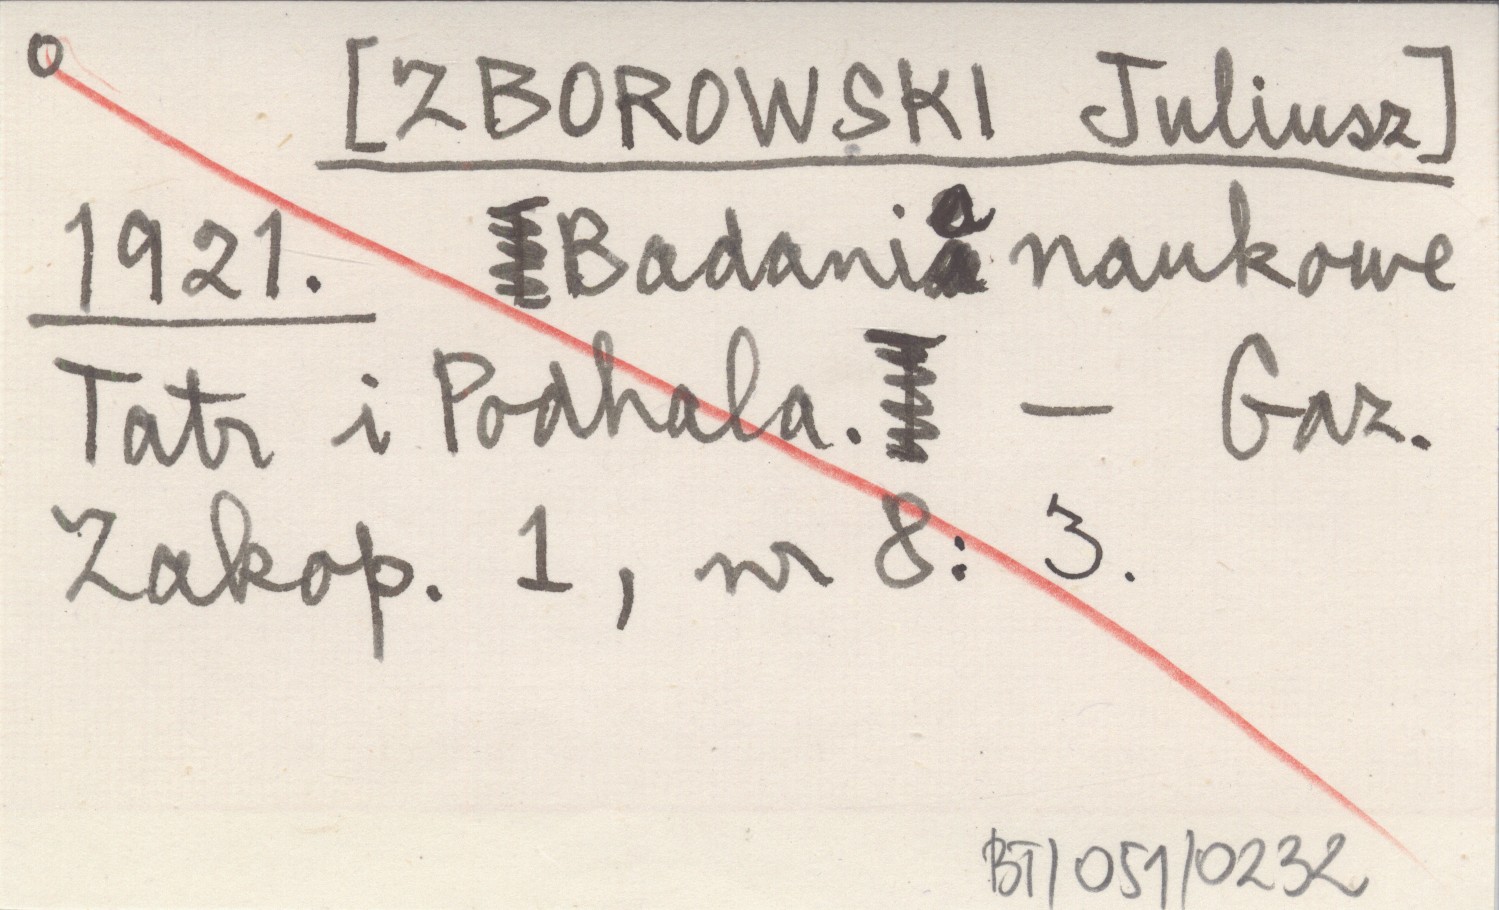 o [ZBOROWSKI Juliusz]
1921. Badania naukowe
Tatr i Podhala. — Gaz.
Zakop. 1, nr 8: 3.
BT/051/0232